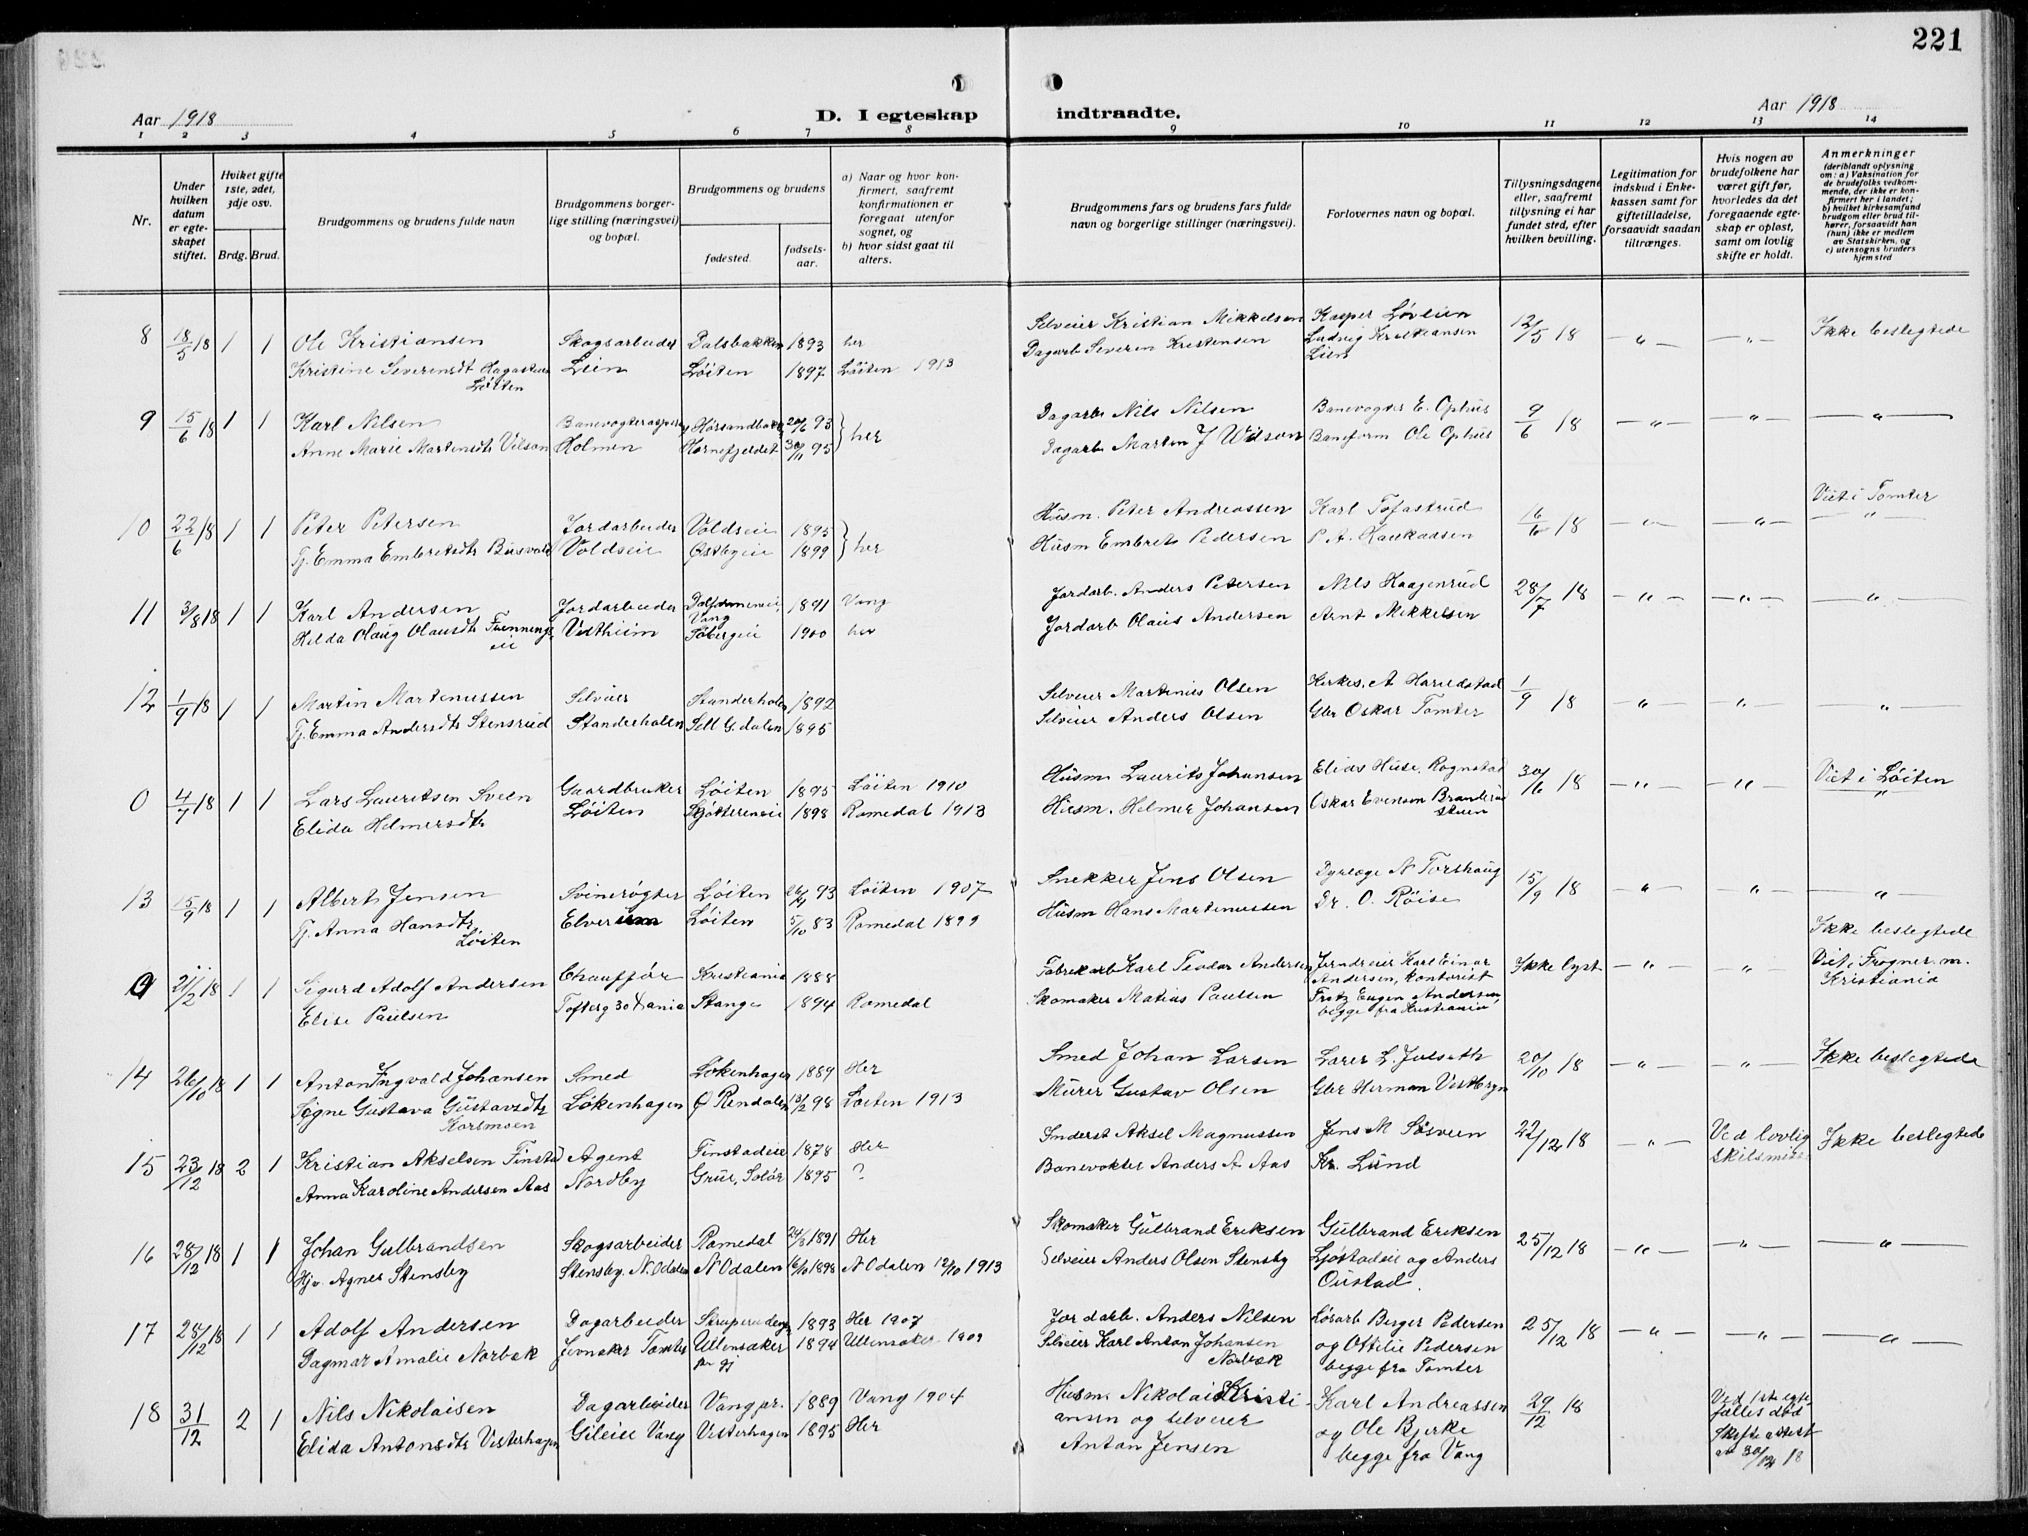 221
Aar 1918
D. I egteskap indtraadte.
Aar 1918
1 2 3 4 5 6 7 8 9 10 11 12 13 14
Nr.
Under hvilken datum er egteskapet stiftet.
Hviket gifte 1ste, 2det, 3dje osv.
Brdg. Brud.
Brudgommens og brudens fulde navn
Brudgommens borgerlige stilling (næringsvei) og bopæl.
Brudgommens og brudens
fødested.
fødsels-aar.
a) Naar og hvor konfirmert, saafremt konfirmationen er foregaat utenfor sognet, og
b) hvor sidst gaat til alters.
Brudgommens fars og brudens fars fulde navn og borgerlige stillinger (næringsvei).
Forlovernes navn og bopæl.
Tillysningsdagene eller, saafremt tillysning ei har fundet sted, efter hvilken bevilling.
Legitimation for indskud i Enkekassen samt for giftetilladelse, forsaavidt saadan tiltrænges.
Hvis nogen av brudefolkene har været gift før, hvorledes da det foregaaende egteskap er opløst, samt om lovlig skifte er holdt.
Anmerkninger (deriblandt oplysning om: a) Vaksination for de brudefolks vedkommende, der ikke er konfirmert her i landet; b) hvilket kirkesamfund brudgom eller brud tilhører, forsaavidt han (hun) ikke er medlem av Statskirken, og c) utensogns bruders hjemsted
8 18/5 18 1 1 Ole Kristiansen Skogsarbeider Dalsbakken 1893 her Selveier Kristian Mikkelsen Kasper Løvlien 12/5 18 — " — — " — Ikke beslegtede
Kristine Severinsdt Hagasteien Løiten Lien Løiten 1897 Løiten 1913 Dagarb Severin Kristensen Ludvig Kristiansen Lien
9 15/6 18 1 1 Karl Nilsen Banevogteraspir. Horsandbakk 20/6 93 her Dagarb Nils Nilsen Banevogter E. Ophus 9/6 18 — " — — " — — " —
Anne Marie Martinsdtr Vilson Holmen Hornefjeldet 30/11 95 Dagarb Martin J Wilson Baneform Ole Ophus
10 22/6 18 1 1 Peter Petersen Jordarbeider Voldseie 1895 her Husm. Peter Andreassen Karl Tofastrud 16/6 18 — " — — " — Viet i Tomter
Pj. Emma Embretsdtr Busvold Voldseie Østbyeie 1899 Husm Embret Pedersen P. A. Haukaasen — " —
11 3/8 18 1 1 Karl Andersen Jordarbeider Vang 1891 Vang Jordarb. Anders Petersen Nils Haagenrud 28/7 18 — " — — " — — " —
Hilda Olaug Olausdt Frenningseie Vestheim Tobergeie 1900 her Jordarb Olaus Andersen Arnt Mikkelsen
12 1/9 18 1 1 Martin Martinussen Selveier Standerholen 1892 Selveier Martinius Olsen Kirkes. A Harildstad 1/9 18 — " — — " — — " —
Pj. Emma Andersdtr Stensrud Standerholen Sell G.dalen 1895 Selveier Anders Olsen Gbr Oskar Tomter
0 4/7 18 1 1 Lars Lauritsen Sveen Gaardbruker Løiten 1895 Løiten 1910 Husm Laurits Johansen Elias Huse, Rognstad 30/6 18 — " — — " — Viet i Løiten
Elida Helmersdtr Løiten Skjøttereneie 1898 Romedal 1913 Husm. Helmer Johansen Oskar Evensen "
13 15/9 18 1 1 Albert Jensen Svinerøgter Løiten 26/4 93 Løiten 1907 Snekker Jens Olsen Dyrlæge N Torshaug 15/9 18 — " — — " — — " —
Pj. Anna Hansdtr Løiten Elverum Løiten 5/10 83 Romedal 1899 Husm Hans Martinussen Dr. O. Røise Ikke beslegtede
0 21/12 18 1 1 Sigurd Adolf Andersen Chauffør Kristiania 1888 Fabrikarb Karl Teodor Andersen Jerndreier Karl Einar Andersen, Kontorist Ikke lyst — " — — " — Viet i Frogner m. Kristiania
Elise Paulsen Toftesg 30 Krania Stange 1894 Romedal Skomaker Matias Paulsen Fritz Eugen Andersen, begge fra Kristiania
14 26/10 18 1 1 Anton Ingvald Johansen Smed Løkenhagen 1889 Her Smed Johan Larsen Lærer L. Julseth 20/10 18 — " — — " — Ikke beslegtede
Signe Gustava Gustavsdtr Korsmoen Løkenhagen Ø Rendalen 13/2 98 Løiten 1913 Murer Gustav Olsen Gbr Herman Vestbryn
15 23/12 18 2 1 Kristian Akselsen Finstad Agent Finstadeie 1878 Her Inderst Aksel Magnussen Jens M Søsveen 22/12 18 — " — Ved lovlig skilsmisse Ikke beslegtede
Anna Karoline Andersen Aas Nordby Grue, Solør 1895 ? Banevokter Anders A Aas Kr. Lund
16 28/12 18 1 1 Johan Gulbrandsen Skogsarbeider Romedal 24/8 1891 Her Skomaker Gulbrand Eriksen Gulbrand Eriksen 25/12 18 — " — — " — — " —
Hjv. Agnes Stensby Stensby. N.Odalen N Odalen 16/10 1898 N Odalen 12/10 1913 Selveier Anders Olsen Stensby Ljøstadeie og Anders Oustad.
17 28/12 18 1 1 Adolf Andersen Dagarbeider 1893 Her 1907 Jordarb. Anders Nilsen Løsarb Berger Pedersen 25/12 18 — " — — " — — " —
Dagmar Amalie Norbæk Jevnaker Tomter Ullensaker 1894 Ullensaker 1909 Selveier Karl Anton Johansen Norbæk og Ottilie Pedersen begge fra Tomter
18 31/12 2 1 Nils Nikolaisen Dagarbeider Vang pr. 1889 Vang 1904 Husm. Nikolai Kristiansen og selveier Karl Andreassen 29/12 18 Ved 1ste egtefælles død
Elida Antonsdtr Vesterhagen Gileie Vang Vesterhagen 1895 Her Anton Jensen og Ole Bjerke begge fra Vang Skifteattest av 30/12 18